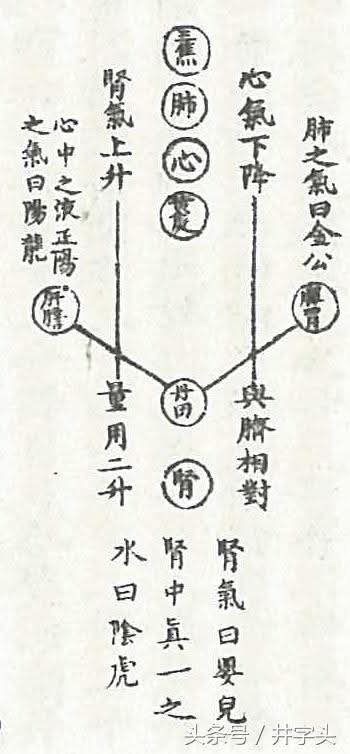 肺之氣曰金公
脾胃
心氣下降
與臍相對
三焦
肺
心
丹田
腎
腎氣上升
量用二升
心中之液正陽
之氣曰陽龍
肝膽
腎氣曰嬰兒
腎中眞一之
水曰陰虎
头条号 / 井字头